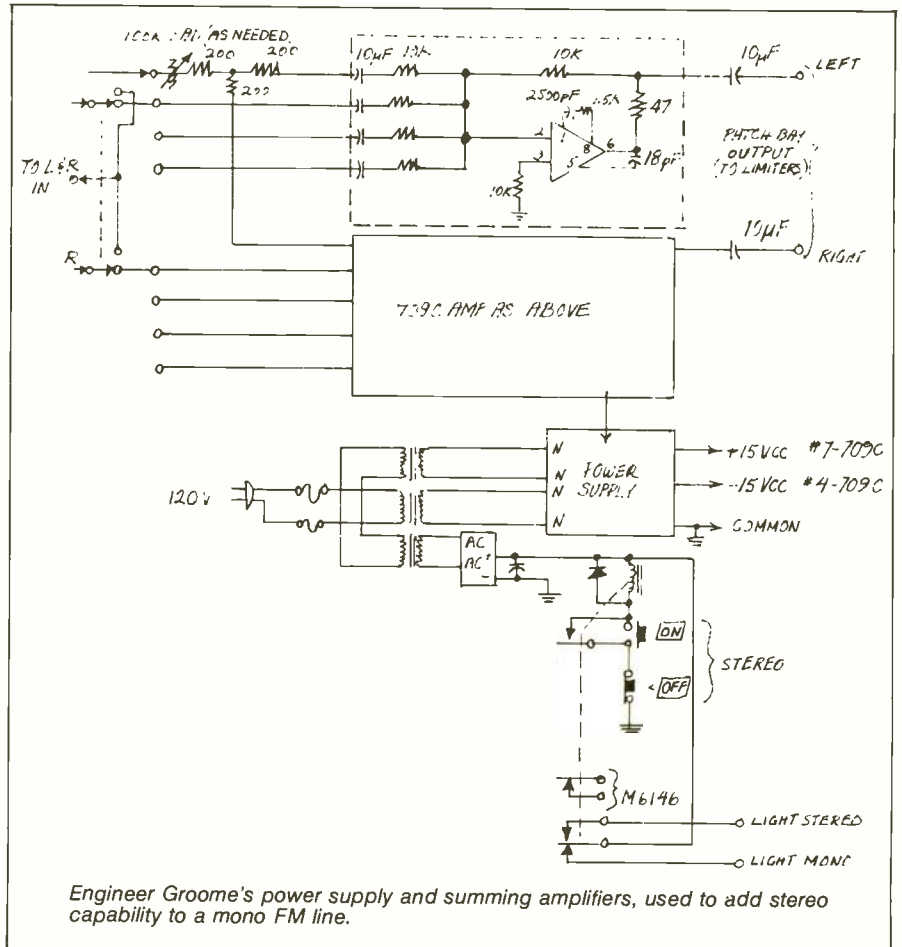 100K BAL AS NEEDED
200
200
200
10µF
10K
10K
2500pF
1.5K
47
2
3
8
6
5
18pF
10K
10µF
LEFT
PATCH BAY
OUTPUT
(TO LIMITERS)
10µF
RIGHT
TO L&R
IN
R
709C AMP AS ABOVE
120V
N
N
N
N
POWER
SUPPLY
+15VCC #7-709C
-15VCC #4-709C
COMMON
AC
AC
+
-
ON
OFF
STEREO
M6146
LIGHT STEREO
LIGHT MONO
Engineer Groome's power supply and summing amplifiers, used to add stereo
capability to a mono FM line.